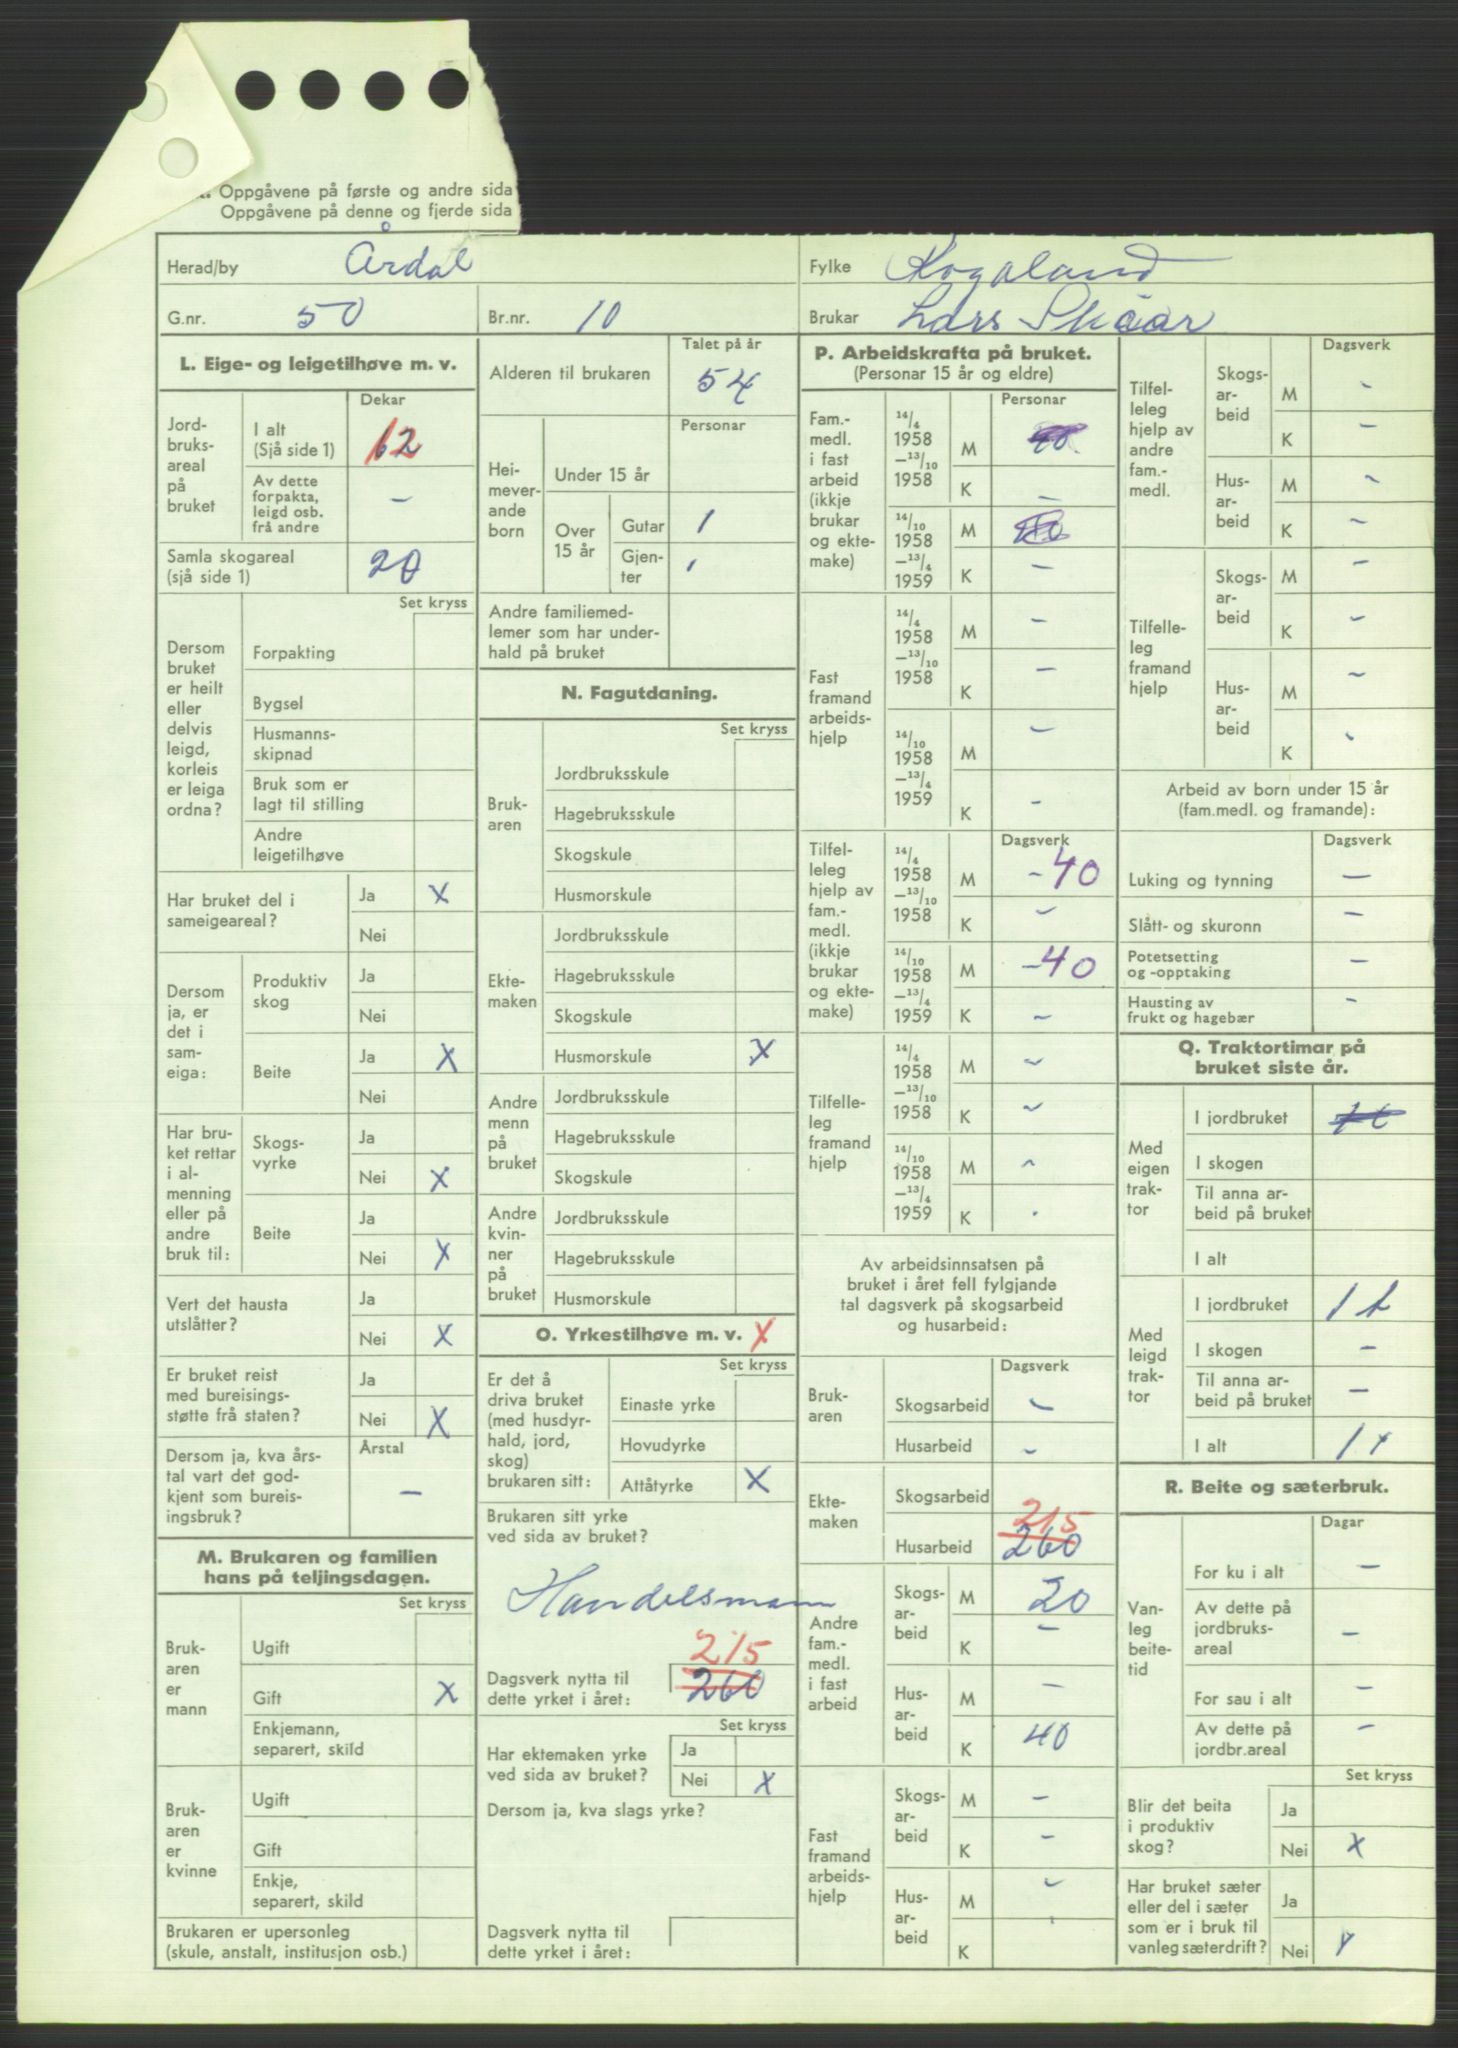 Oppgåvene på første og andre sida
Oppgåvene på denne og fjerde sida
Herad/by Årdal
Fylke Rogaland
G.nr. 50 Br.nr. 10
Brukar Lars Skåar
L. Eige- og leigetilhøve m. v.
Dekar
Jordbruksareal på bruket
I alt (Sjå side 1) 62
Av dette forpakta, leigd osb. frå andre –
Samla skogareal (sjå side 1) 20
Set kryss
Dersom bruket er heilt eller delvis leigd, korleis er leiga ordna?
Forpakting
Bygsel
Husmannsskipnad
Bruk som er lagt til stilling
Andre leigetilhøve
Har bruket del i sameigeareal?
Ja X
Nei
Dersom ja, er det i sameiga:
Produktiv skog
Ja
Nei
Beite
Ja X
Nei
Har bruket rettar i almenning eller på andre bruk til:
Skogsvyrke
Ja
Nei X
Beite
Ja
Nei X
Vert det hausta utslåtter?
Ja
Nei X
Er bruket reist med bureisingsstøtte frå staten?
Ja
Nei X
Dersom ja, kva årstal vart det godkjent som bureisingsbruk?
Årstal
–
M. Brukaren og familien hans på teljingsdagen.
Set kryss
Brukaren er mann
Ugift
Gift X
Enkjemann, separert, skild
Brukaren er kvinne
Ugift
Gift
Enkje, separert, skild
Brukaren er upersonleg (skule, anstalt, institusjon osb.)
Talet på år
Alderen til brukaren 54
Personar
Heimeverande born
Under 15 år
Over 15 år
Gutar 1
Gjenter
Andre familiemedlemer som har underhald på bruket
N. Fagutdaning.
Set kryss
Brukaren
Jordbruksskule
Hagebruksskule
Skogskule
Husmorskule
Ektemaken
Jordbruksskule
Hagebruksskule
Skogskule
Husmorskule X
Andre menn på bruket
Jordbruksskule
Hagebruksskule
Skogskule
Andre kvinner på bruket
Jordbruksskule
Hagebruksskule
Husmorskule
O. Yrkestilhøve m. v. X
Set kryss
Er det å driva bruket (med husdyrhald, jord, skog) brukaren sitt:
Einaste yrke
Hovudyrke
Attåtyrke X
Brukaren sitt yrke ved sida av bruket?
Handelsmann
215
Dagsverk nytta til dette yrket i året: 260
Set kryss
Har ektemaken yrke ved sida av bruket?
Ja
Nei X
Dersom ja, kva slags yrke?
Dagsverk nytta til dette yrket i året:
P. Arbeidskrafta på bruket.
(Personar 15 år og eldre)
Personar
Fam.medl. i fast arbeid (ikkje brukar og ektemake)
14/4 1958 –13/10 1958
M 40
K –
14/10 1958 –13/4 1959
M
K –
Fast framand arbeidshjelp
14/4 1958 –13/10 1958
M –
K –
14/10 1958 –13/4 1959
M –
K –
Dagsverk
Tilfelleleg hjelp av fam.medl. (ikkje brukar og ektemake)
14/4 1958 –13/10 1958
M –40
K –
14/10 1958 –13/4 1959
M –40
K –
Tilfelleleg framand hjelp
14/4 1958 –13/10 1958
M –
K –
14/10 1958 –13/4 1959
M –
K
Av arbeidsinnsatsen på bruket i året fell fylgjande tal dagsverk på skogsarbeid og husarbeid:
Dagsverk
Brukaren
Skogsarbeid –
Husarbeid –
Ektemaken
Skogsarbeid
215
Husarbeid 260
Andre fam.medl. i fast arbeid
Skogsarbeid
M 20
K –
Husarbeid
M –
K 40
Fast framand arbeidshjelp
Skogsarbeid
M –
K –
Husarbeid
M –
K
Dagsverk
Tilfelleleg hjelp av andre fam.medl.
Skogsarbeid
M –
K –
Husarbeid
M –
K –
Tilfelleleg framand hjelp
Skogsarbeid
M –
K –
Husarbeid
M –
K –
Arbeid av born under 15 år (fam.medl. og framande):
Dagsverk
Luking og tynning –
Slått- og skuronn –
Potetsetting og -opptaking –
Hausting av frukt og hagebær –
Q. Traktortimar på bruket siste år.
Med eigen traktor
I jordbruket
I skogen
Til anna arbeid på bruket
I alt
Med leigd traktor
I jordbruket
I skogen –
Til anna arbeid på bruket –
I alt
R. Beite og sæterbruk.
Dagar
Vanleg beitetid
For ku i alt –
Av dette på jordbruksareal –
For sau i alt –
Av dette på jordbr.areal –
Set kryss
Blir det beita i produktiv skog?
Ja
Nei X
Har bruket sæter eller del i sæter som er i bruk til vanleg sæterdrift?
Ja
Nei X